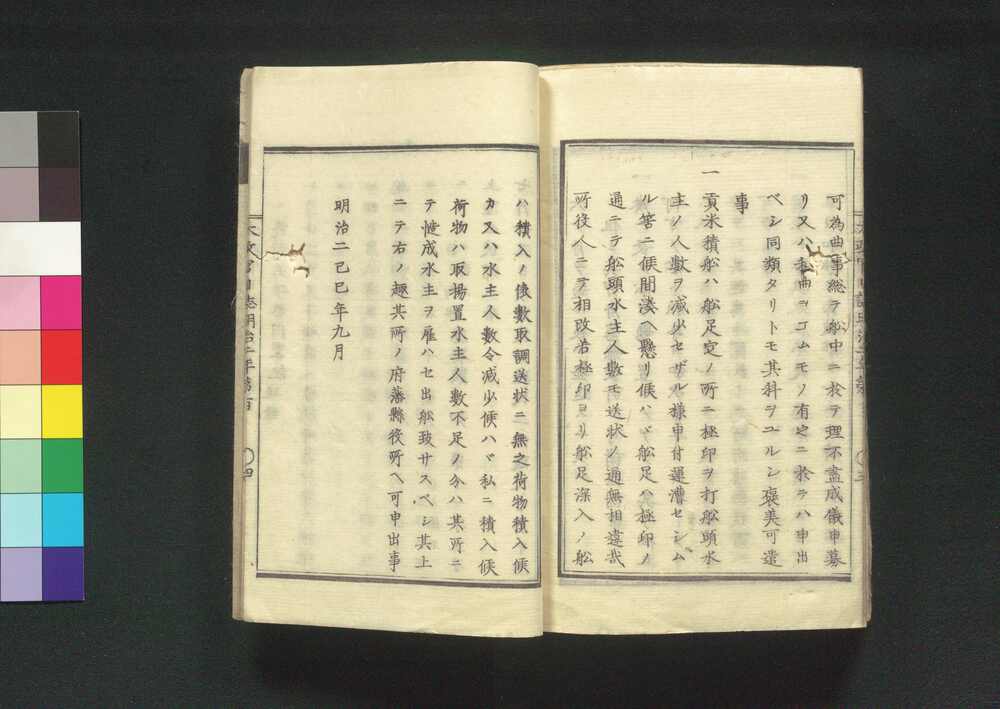 可為曲事総テ舩中ニ於テ理不盡成儀申募
リ又ハ私曲ヲコムモノ有之ニ於ラハ申出
ベシ同類タリトモ其科ヲユルシ褒美可遣
事
一貢米積舩ハ舩足定ノ所ニ極印ヲ打舩頭水
主ノ人數ヲ減少セザル様申付運漕セシム
ル筈ニ候間湊ヘ懸リ候ハヾ舩足ハ極印ノ
通ニテ舩頭水主人數モ送状ノ通無相違哉
所役人ニテ相改若極印ヨリ舩足深入ノ舩
ハ積入ノ俵數取調送状ニ無之荷物積入候
カ又ハ水主人數令減少候ハヾ私ニ積入候
荷物ハ取揚置水主人數不足ノ分ハ其所ニ
テ慥成水主ヲ雇ハセ出舩致サスベシ其上
ニテ右ノ趣其所ノ府藩縣役所ヘ可申出事
明治二己巳年九月
太政官日誌明治二年第百
四